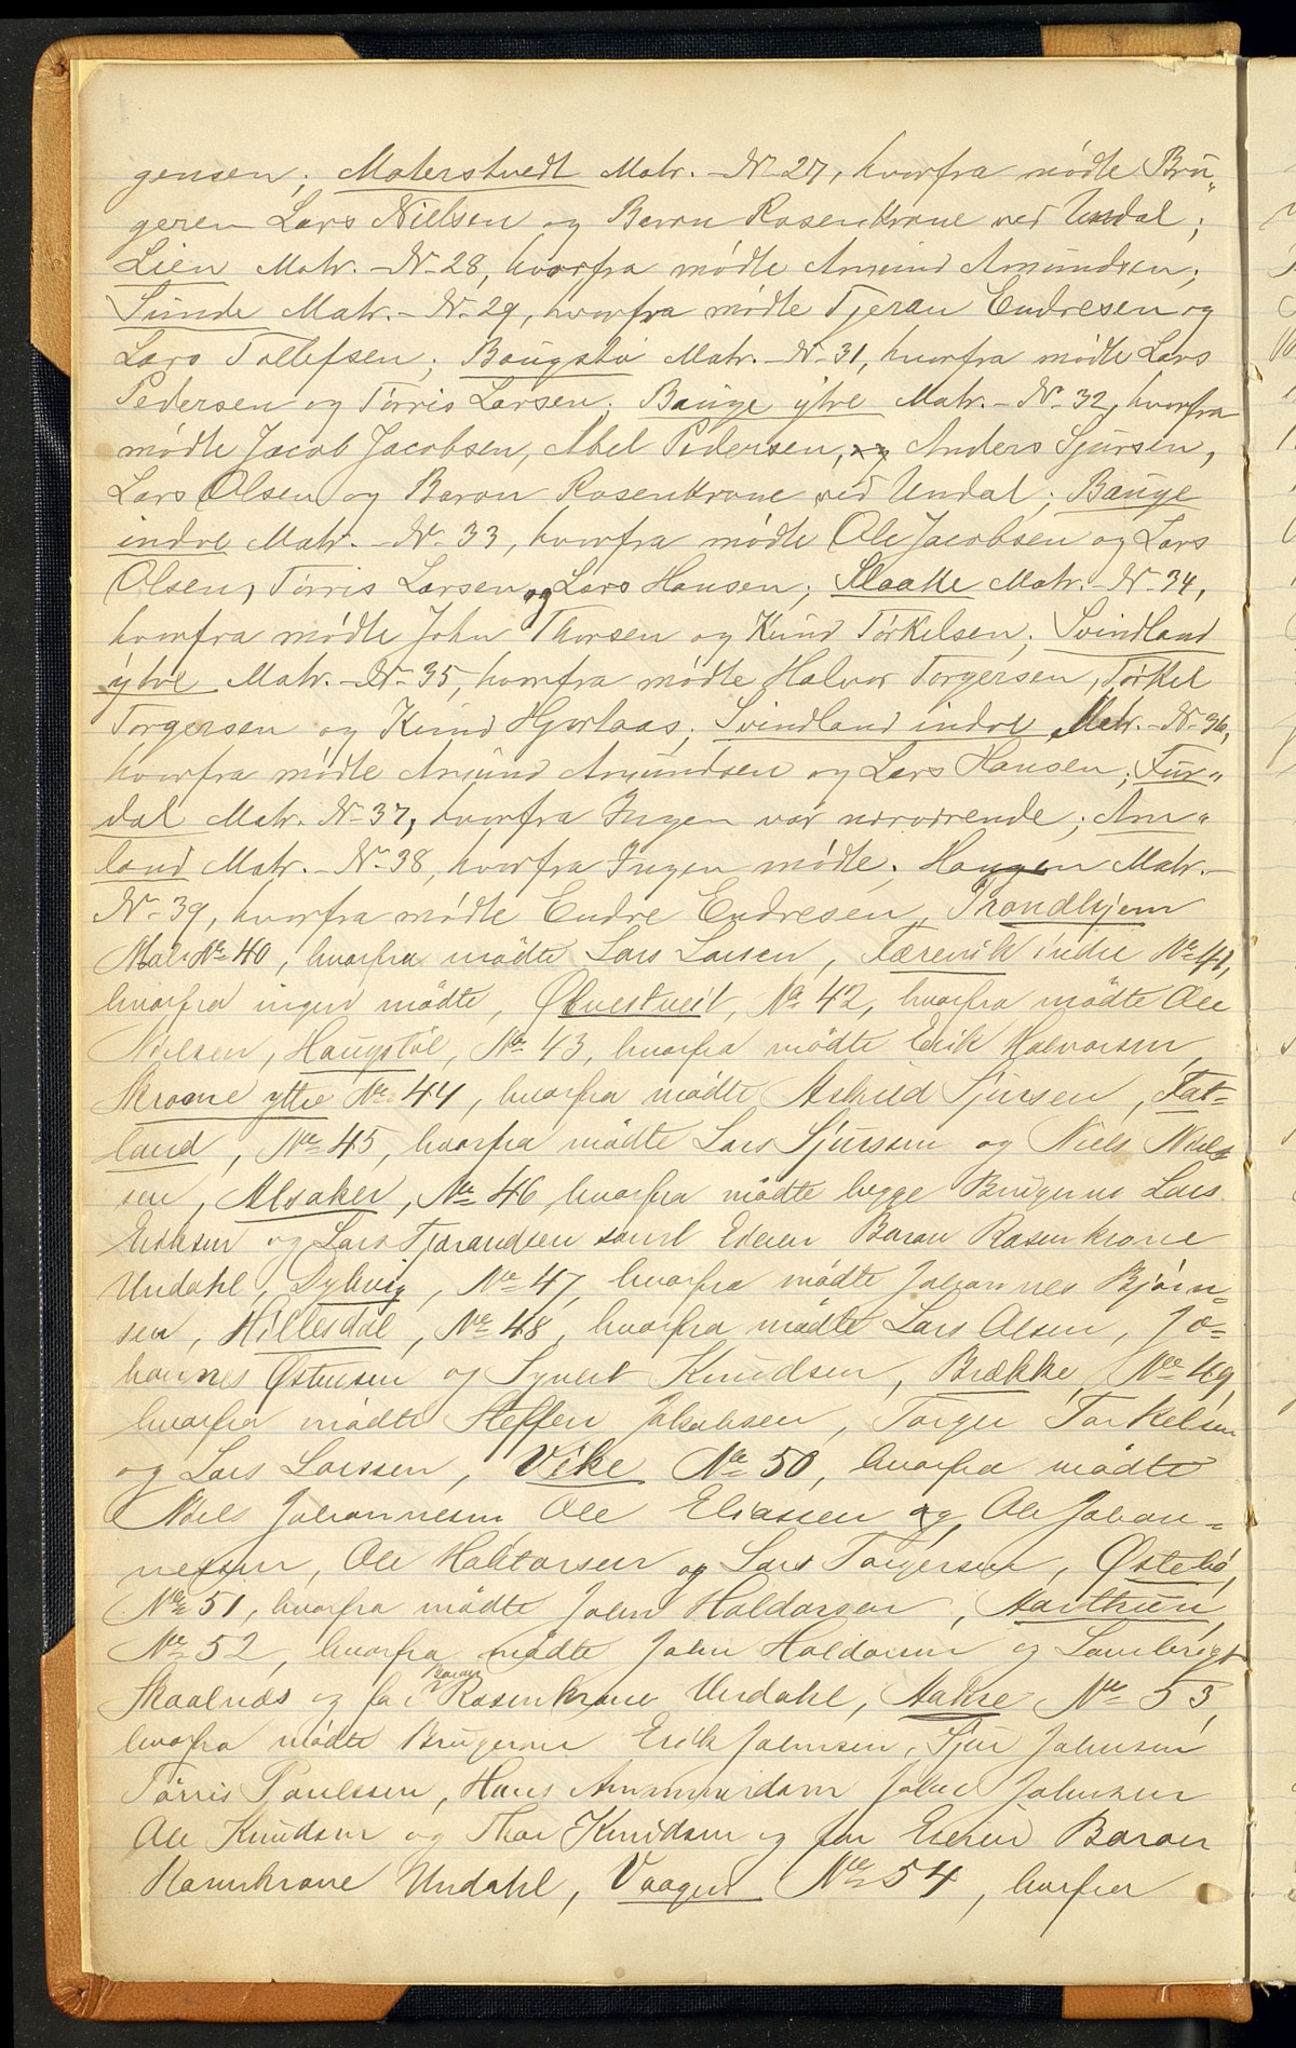 gensen; Materstvedt Matr.-No 27, hvorfra mödte Brü„
geren Lars Nielsen og Baron Rosenkrone ved Undal;
Lien Matr.-No 28, hvorfra mödte Amund Amundsen;
Sunde Matr.-No 29, hvorfra mödte Tjeran Endresen og
Lars Tollefsen; Baugstö Matr.-No 31, hvorfra mödte Lars
Pedersen og Törris Larsen. Bauge ytre Matr.-No 32, hvorfra
mödte Jacob Jacobsen, Abel Pedersen, og Anders Sjursen,
Lars Olsen og Baron Rosenkrone ved Undal; Bauge
indre Matr.-No 33, hvorfra mödte Ole Jacobsen og Lars
Olsen, Törris Larsen og Lars Hansen; Slaatte Matr.-No 34,
hvorfra mödte John Thorsen og Knud Törkelsen; Svindland
ytre Matr.-No 35, hvorfra mödte Halvor Torgersen, Törkel
Torgersen og Knud Hjortaas; Svindland indre Matr.-No 36,
hvorfra mödte Amund Amundsen og Lars Hansen; Fur„
dal Matr. No 37, hvorfra Ingen var nærværende; Am„
land Matr.-No 38, hvorfra Ingen mödte; Haugen Matr.-
No 39, hvorfra mödte Endre Endresen, Trondhjem
Matr No 40, hvorfra mödte Lars Larsen, Færevik indre No 41,
hvorfra ingen mödte, Øvrestveit, No 42, hvorfra mödte Ole
Nielsen, Haugstöl, No 43, hvorfra mödte Erik Halvorsen,
Skrome ytre No 44, hvorfra mödte Sjursen, Fat-
land, No 45, hvorfra mödte Lars Sjurssen og Niels Niels
sen, Alsaker, No 46 hvorfra mödte begge Brugerne Lars
Eriksen og Lars Tjerandsen samt Eieren Baron Rosenkrone
Undahl, Dybvig, No 47, hvorfra mödte Johannes Bjørn-
sen, Hillesdal, No 48, hvorfra mödte Lars Olsen, Jo-
hannes Østensen og Syvert Knudsen, Brække, No 49,
hvorfra mödte Steffen Jakobsen, Torger Torkelsen
og Lars Larssen, Vike No 50, hvorfra mödte
Niels Johannesen, Ole Eliassen og Ole Johan-
nesen, Ole Haktorsen og Lars Torgersen, Østebö,
No 51, hvorfra mödte John Haldorsen, Aarthun,
No 52, hvorfra mödte John Haldorsen og Lambrigt
Skaalnæs og for Baron Rosenkrone Undahl, Aakre No 53,
hvorfra mödte Brugerne Erik Johnsen, Sjur Johnsen
Törris Paulssen, Hans John Johnsen
Ole Knudsen og Thor Knudsen og for Eieren Baron
Rosenkrone Undahl, Vaagen No 54, hvorfra